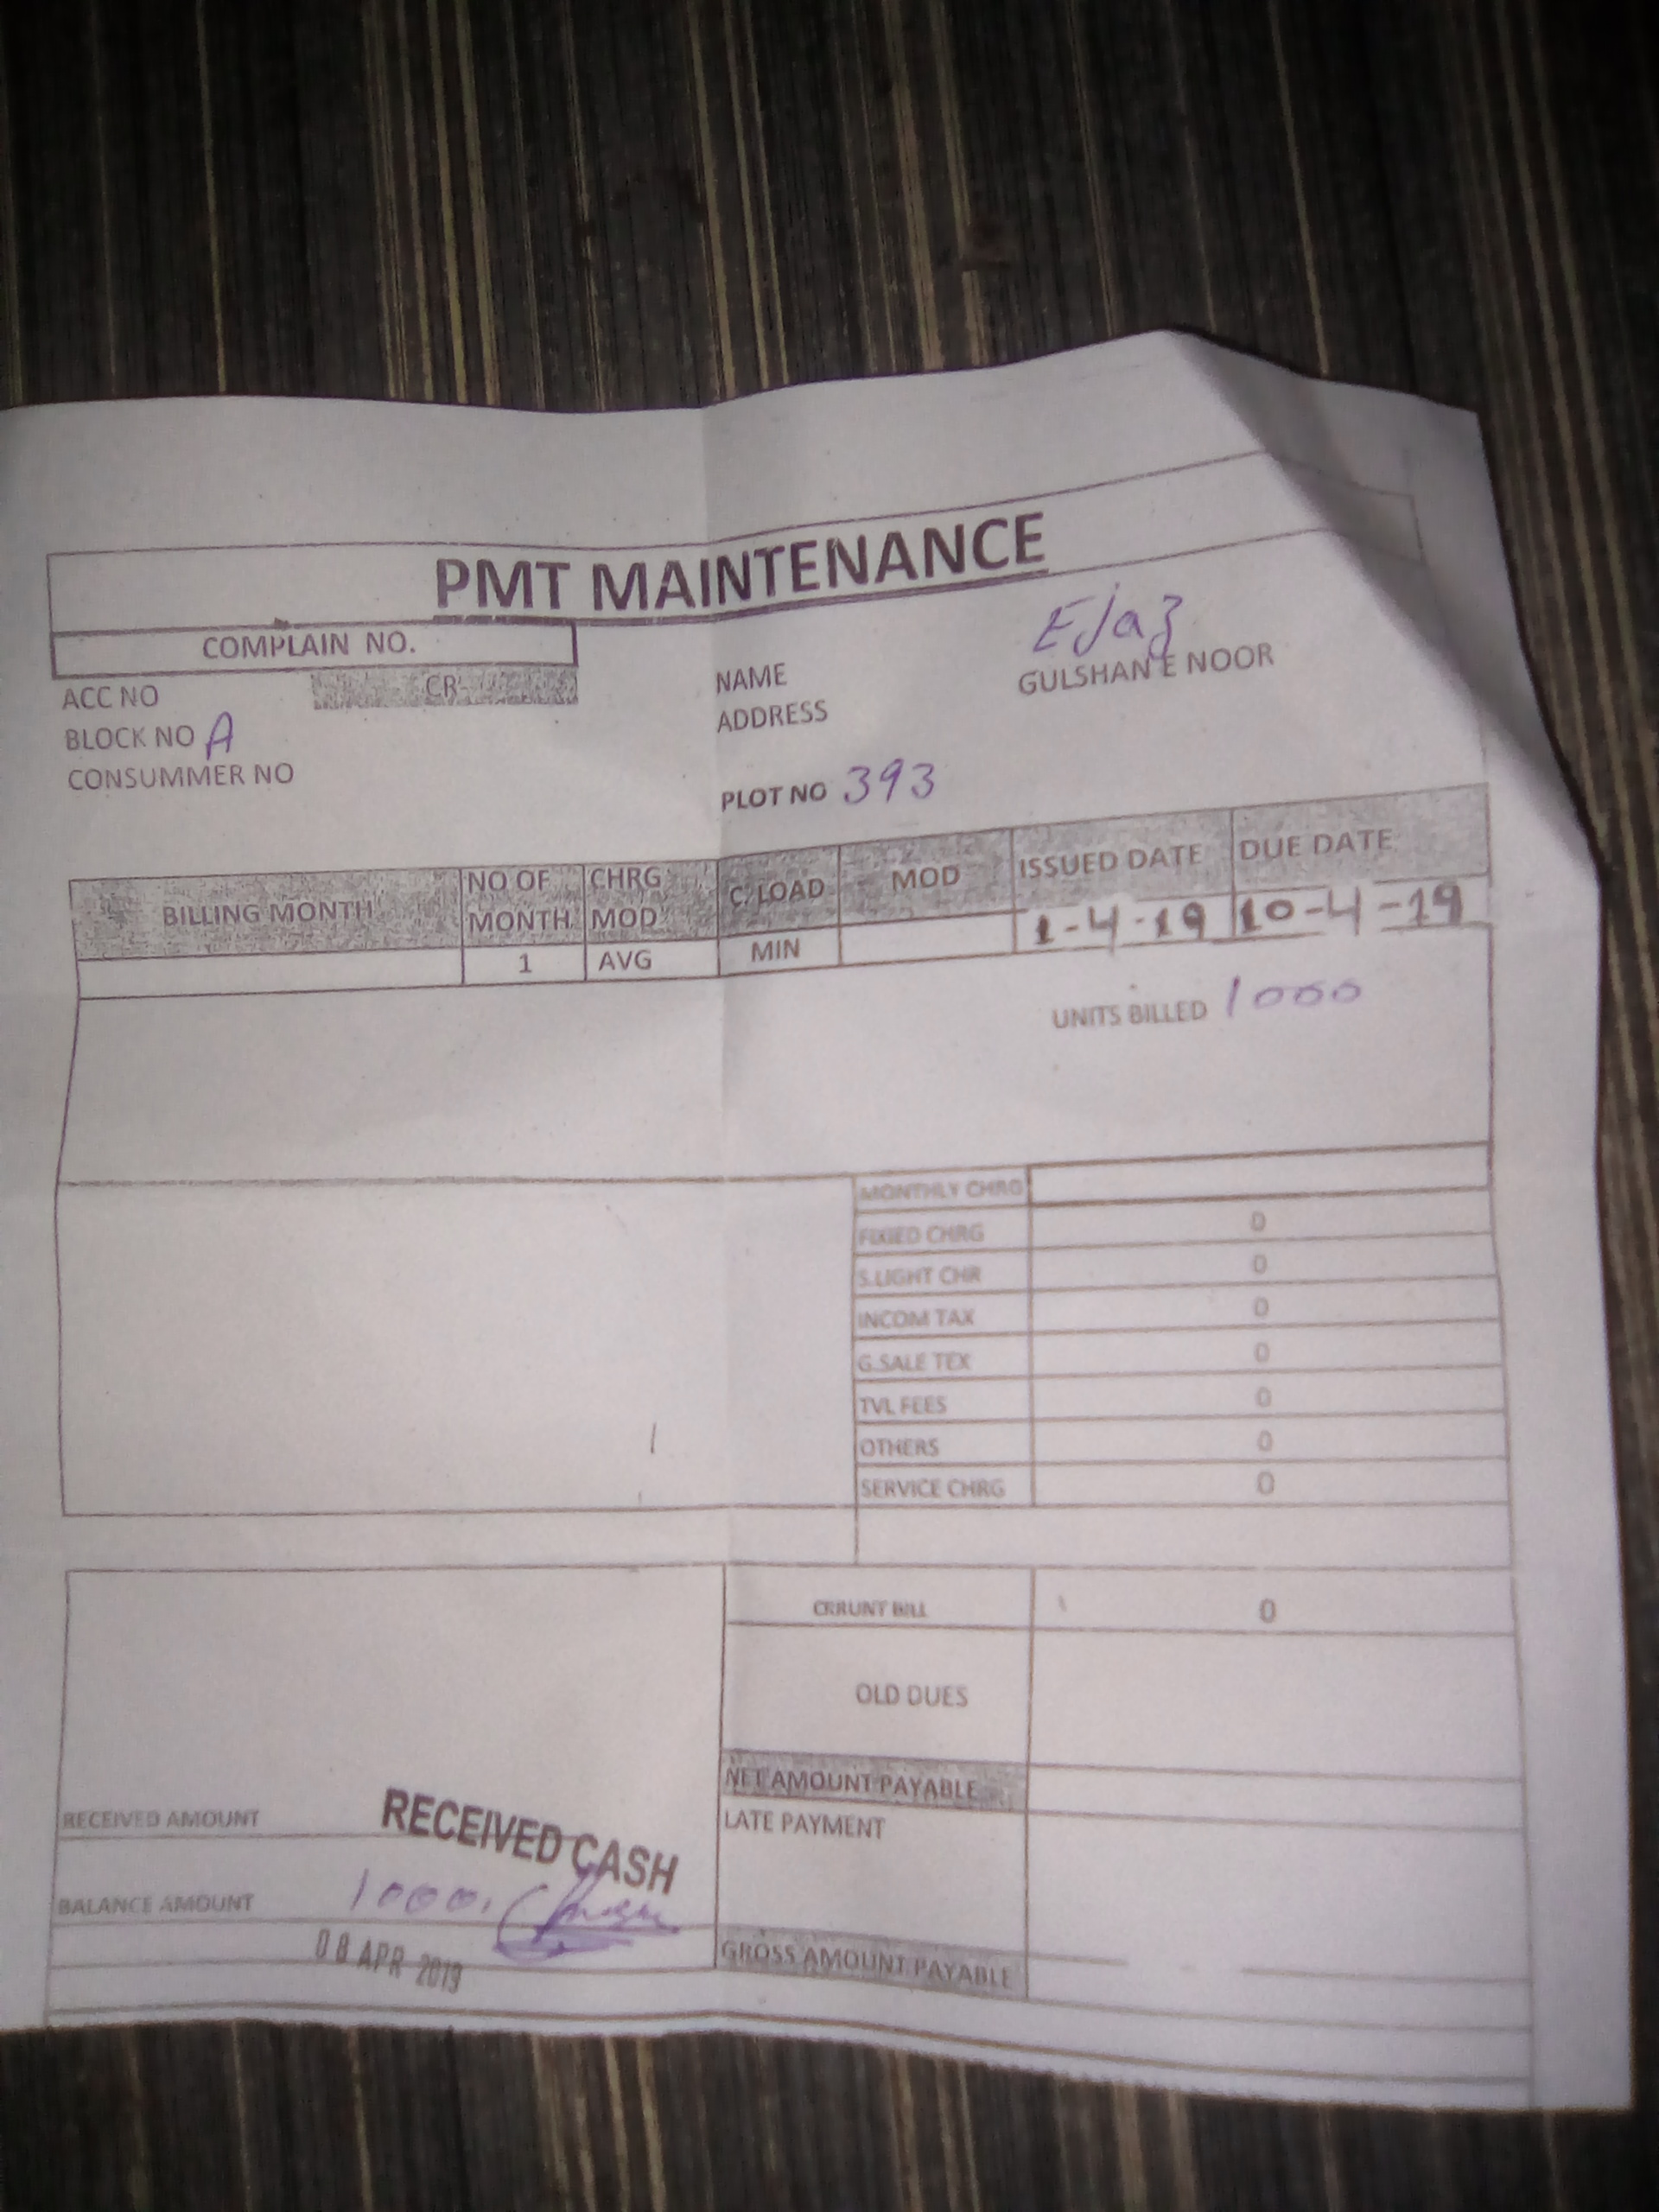 PMT MAINTENANCE
COMPLAIN NO.
ACC NO CR
BLOCK NO A
CONSUMMER NO
NAME Ejaz
ADDRESS GULSHAN E NOOR
PLOT NO 393
BILLING MONTH NO OF MONTH CHRG MOD C. LOAD MOD ISSUED DATE DUE DATE
1 AVG MIN 1-4-19 10-4-19
UNITS BILLED 1000
MONTHLY CHRG
FIXIED CHRG 0
S.LIGHT CHR 0
INCOM TAX 0
G.SALE TEX 0
TVL FEES 0
OTHERS 0
SERVICE CHRG 0
CRRUNT BILL 0
OLD DUES
NET AMOUNT PAYABLE
LATE PAYMENT
GROSS AMOUNT PAYABLE
RECEIVED AMOUNT RECEIVED CASH
BALANCE AMOUNT 1000.
08 APR 2019